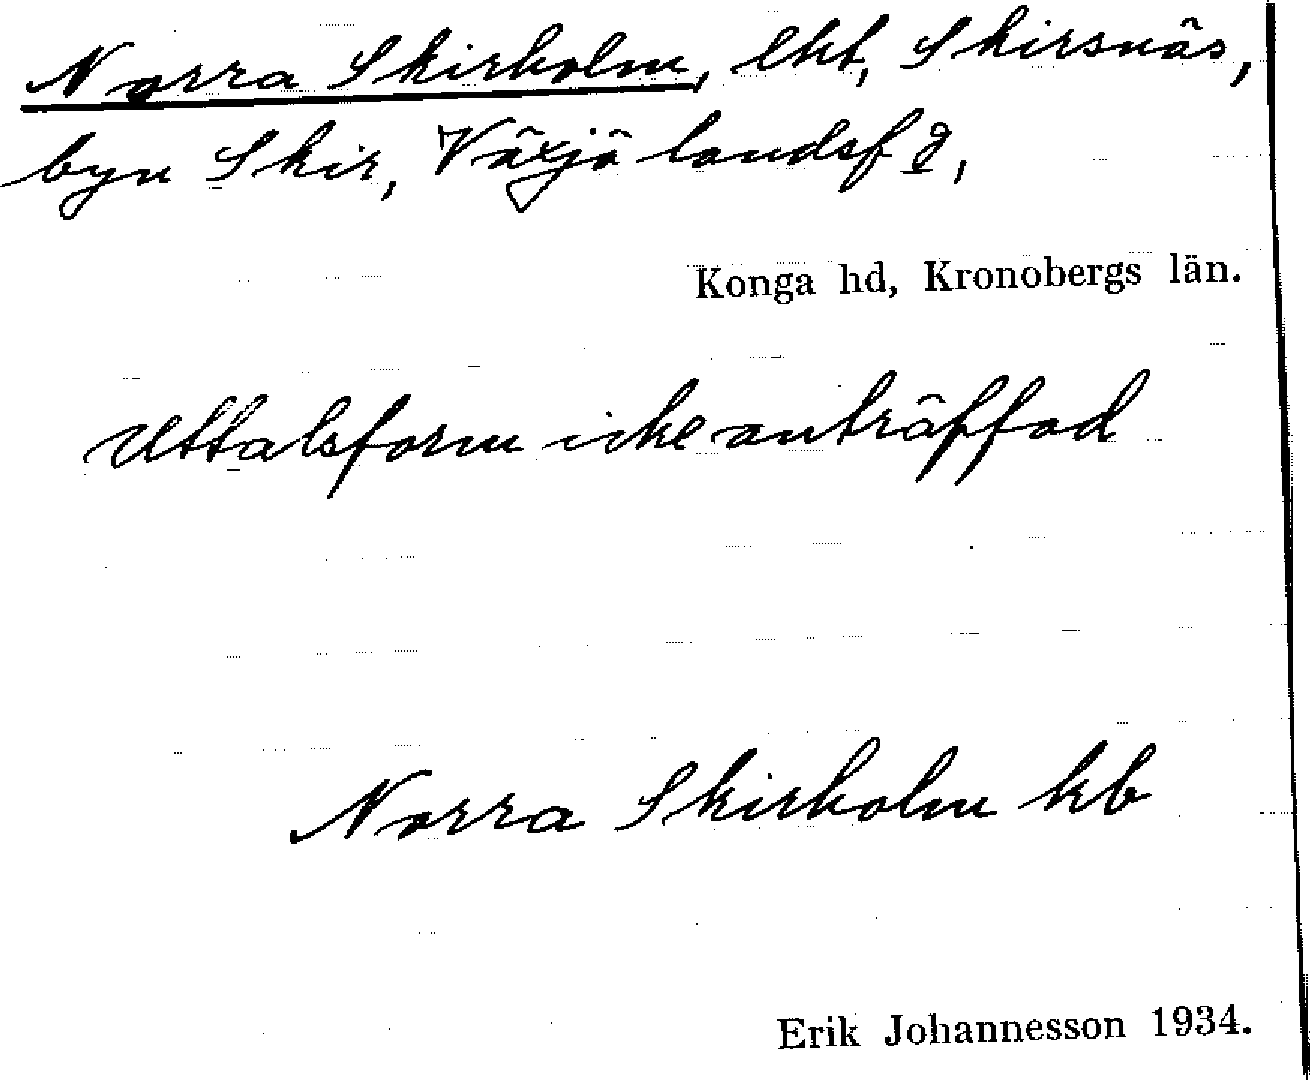 Norra Skirholm, lht, Skirsnäs,
byn Skir, Växjö landsf d,
Konga hd, Kronobergs län.
Uttalsform icke anträffad
Norra Skirholm kb
Erik Johannesson 1934.